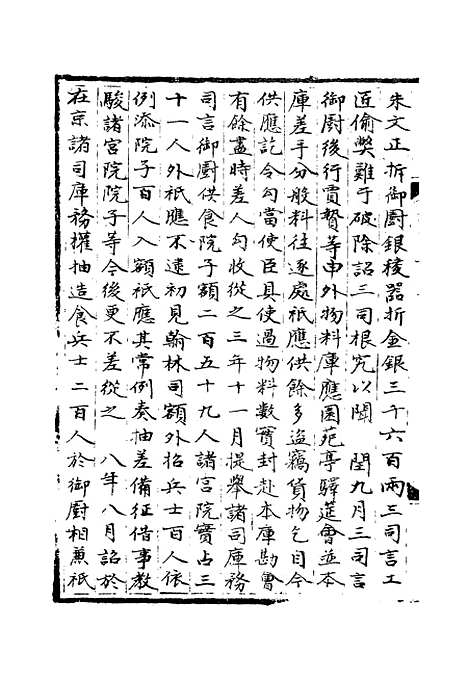 朱文正拆御厨銀稜器折金銀三千六百兩三司言工
匠偷獘難于破除詔三司根究以聞　閏九月三司言
御厨後行賈贇等申外物料庫應園苑亭驛筵會並本
庫差手分般料往逐處祗應供餘多盜竊貨物乞自今
供應訖令勾當使臣具使過物料數實封赴本庫勘會
有餘盡時差人勾收從之三年十一月提舉諸司庫務
司言御厨供食院子額二百五十九人諸宮院實占三
十一人外祗應不遠初見翰林司額外招兵士百人依
例添院子百人入額祗應其常例奏抽差備征借事教
駿諸宮院院子等今後更不差從之　八年八月詔於
在京諸司庫務權抽造食兵士二百人於御厨相兼祗